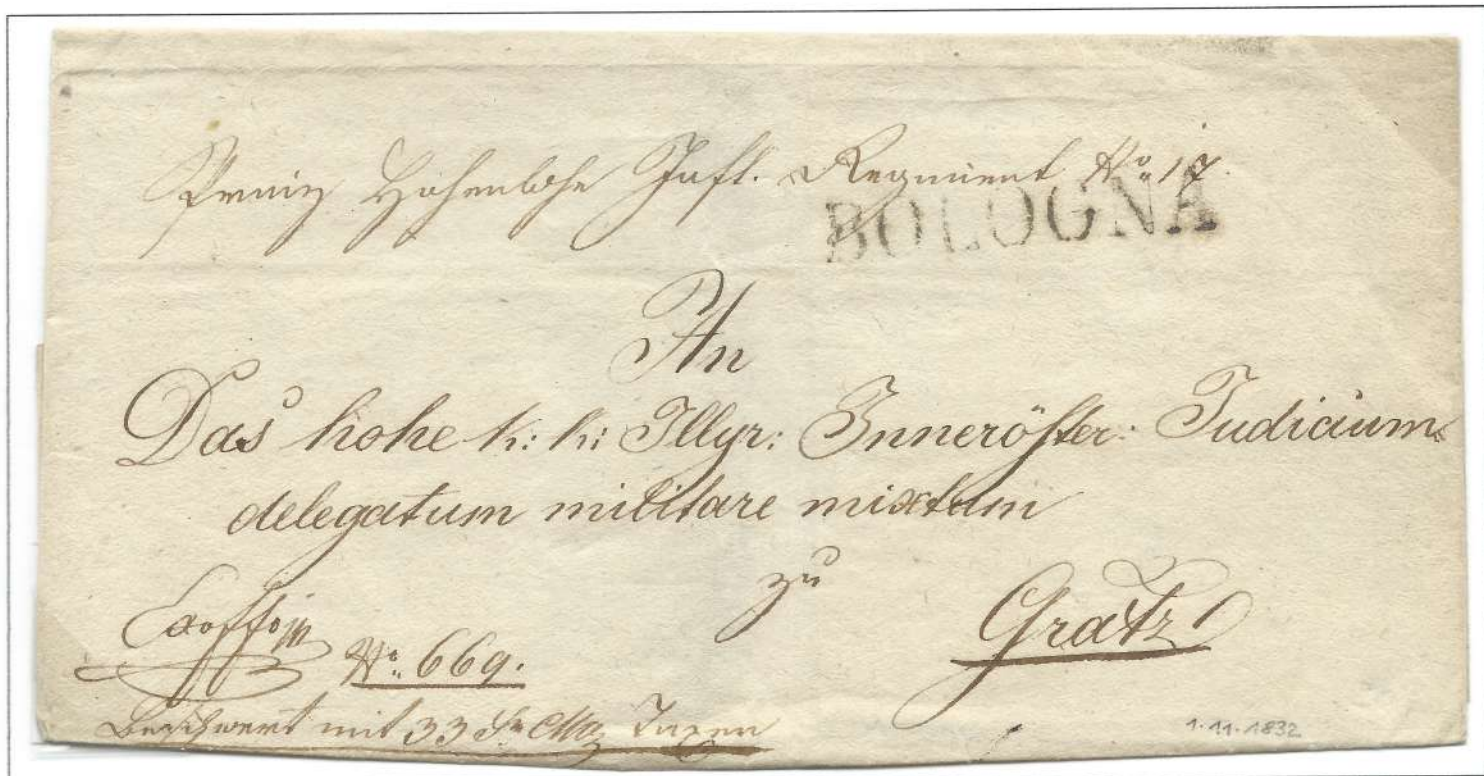 Prinz Hohenlohe Inft. Regiment No: 17.
BOLOGNA
An
Das hohe k: k: Illyr: Inneröster: Judicium
delegatum militare mixtum
zu
Gratz
Exoffo
No: 669.
Beschwert mit 33 CMz Taxen
1.11.1832